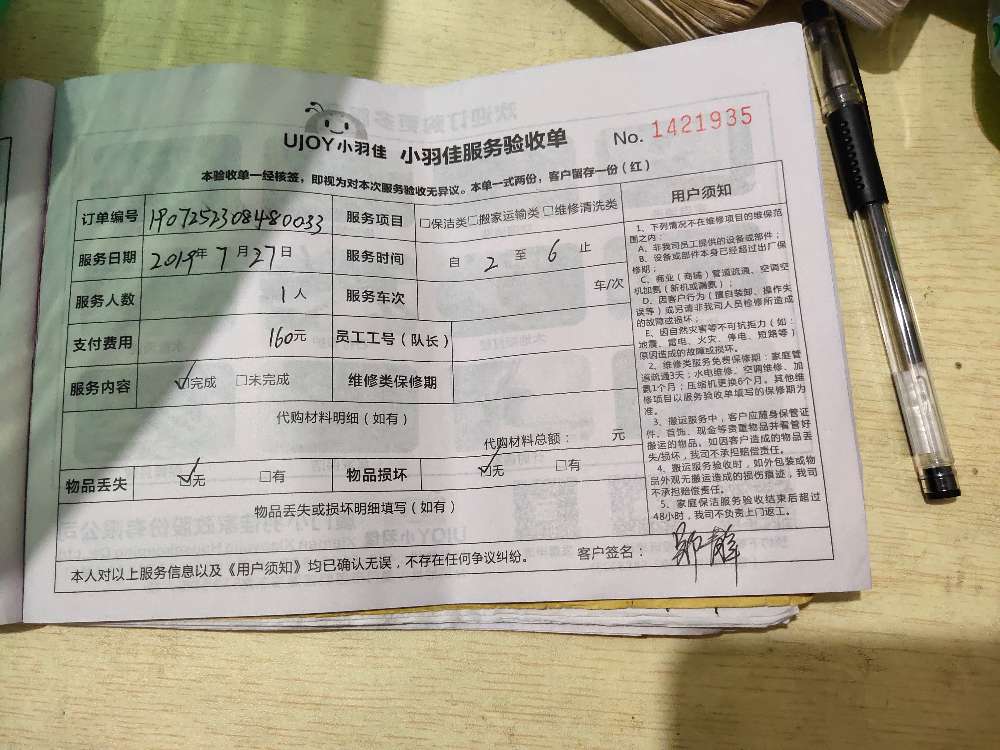 UJOY小羽佳 小羽佳服务验收单 No. 1421935
本验收单一经核签，即视为对本次服务验收无异议。本单一式两份，客户留存一份（红）
订单编号 1907252308480033 服务项目 □保洁类□搬家运输类□维修清洗类
服务日期 2019年7月27日 服务时间 自 2 至 6 止
服务人数 1人 服务车次 车/次
支付费用 160元 员工工号（队长）
服务内容 ☑完成 □未完成 维修类保修期
代购材料明细（如有）
代购材料总额： 元
物品丢失 ☑无 □有 物品损坏 ☑无 □有
物品丢失或损坏明细填写（如有）
本人对以上服务信息以及《用户须知》均已确认无误，不存在任何争议纠纷。 客户签名：
用户须知
1、下列情况不在维修项目的维保范
围之内：
A、非我司员工提供的设备或部件；
B、设备或部件本身已经超过出厂保
修期；
C、商业（商铺）管道疏通、空调空
机加氟（新机或漏氟）；
D、因客户行为（擅自装卸、操作失
误等）或另请非我司人员检修所造成
的故障或损坏；
E、因自然灾害等不可抗拒力（如：
地震、雷电、火灾、停电、短路等）
原因造成的故障或损坏。
2、维修类服务免费保修期：家庭管
道疏通3天；水电维修、空调维修、加
氟1个月；压缩机更换6个月。其他维
修项目以服务验收单填写的保修期为
准。
3、搬运服务中，客户应随身保管证
件、首饰、现金等贵重物品并看管好
搬运的物品。如因客户造成的物品丢
失/损坏，我司不承担赔偿责任。
4、搬运服务验收时，如外包装或物
品外观无搬运造成的损伤痕迹，我司
不承担赔偿责任。
5、家庭保洁服务验收结束后超过
48小时，我司不负责上门返工。